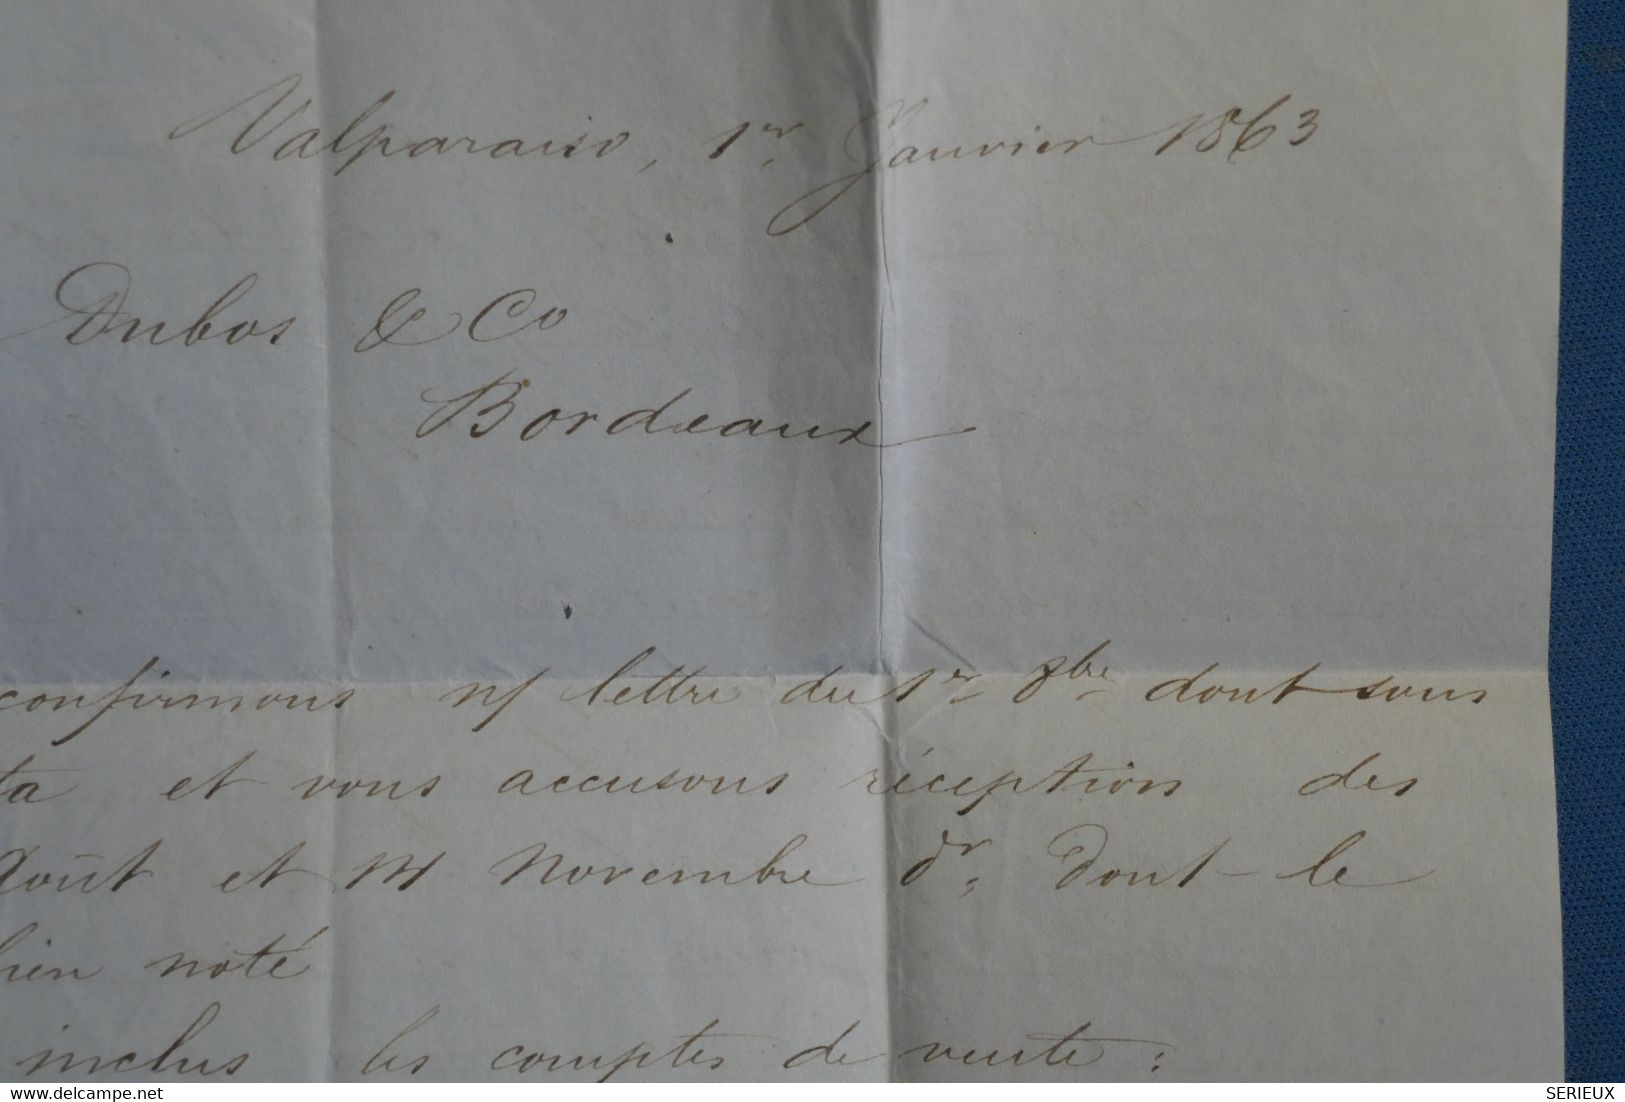 Valparaiso, 1er Janvier 1863
Dubos & Co
Bordeaux
confirmons n/ lettre du 1er 8bre dont sous
ta et vous accusons réception des
Août et 14 Novembre dr. dont le
bien noté
inclus les comptes de vente :
delcampe.net
SERIEUX